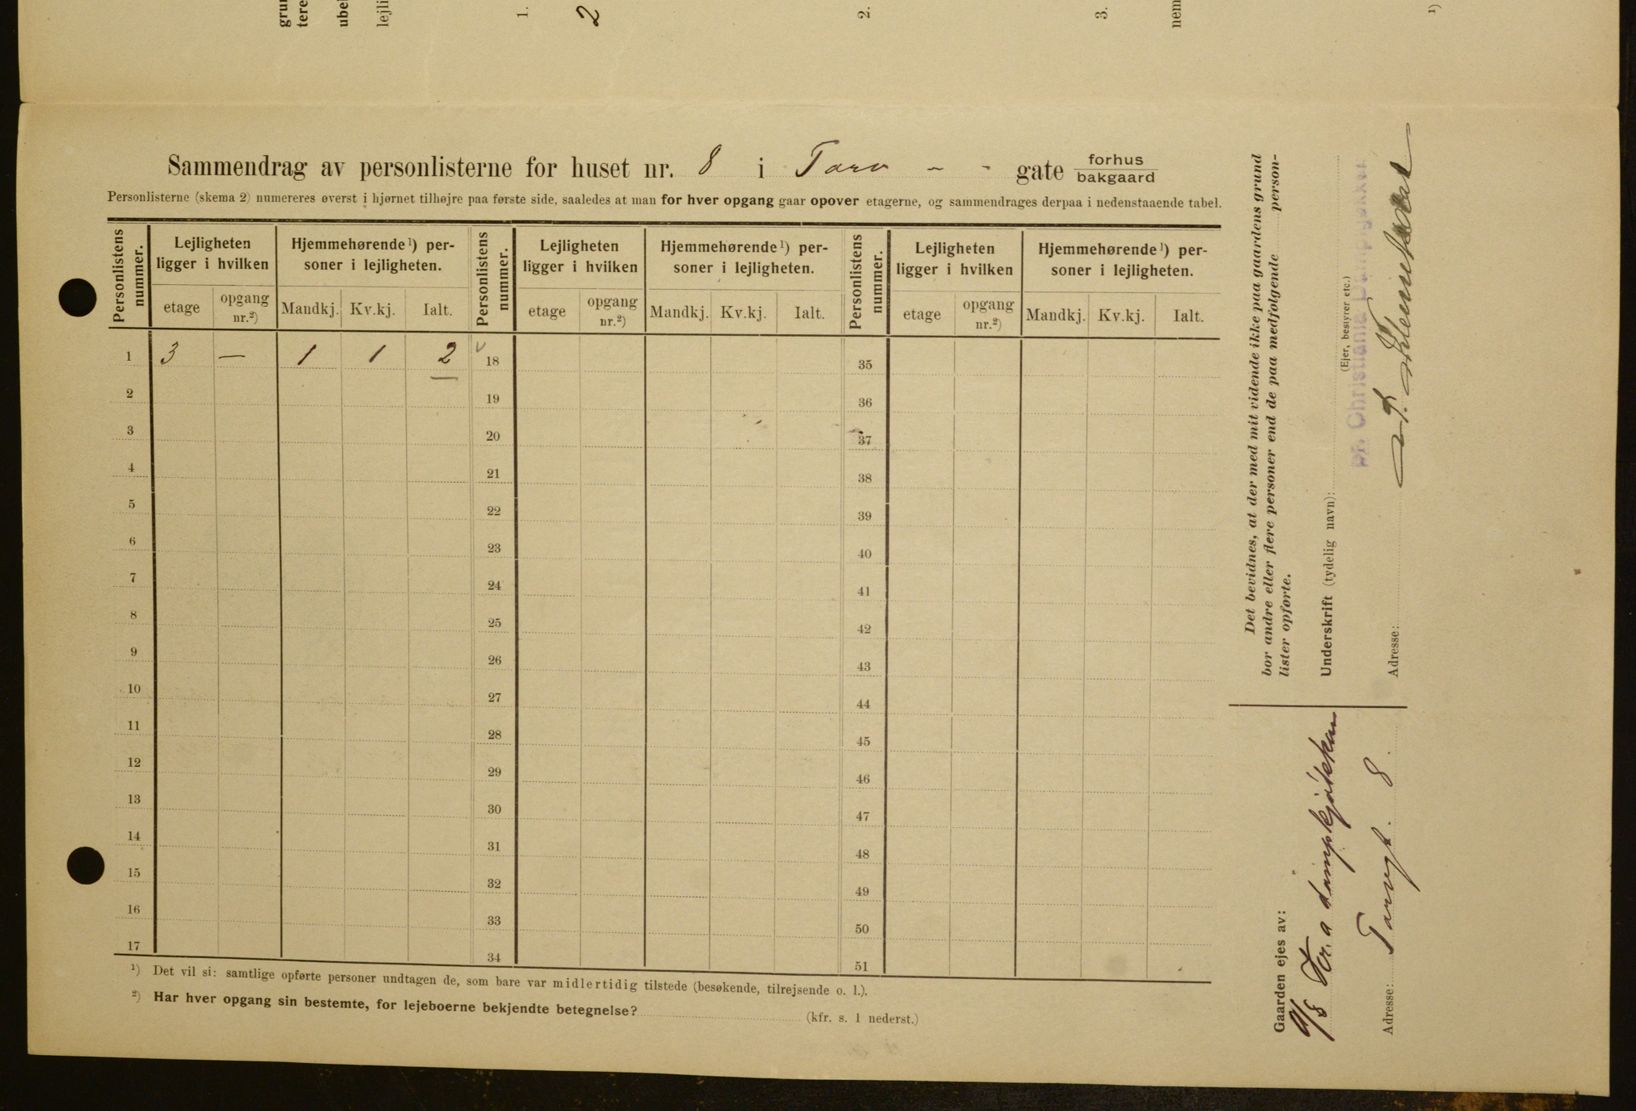 1.
2
2.
3.
1)
Sammendrag av personlisterne for huset nr. 8 i Torv - - gate forhus
bakgaard
Personlisterne (skema 2) numereres øverst i hjørnet tilhøjre paa første side, saaledes at man for hver opgang gaar opover etagerne, og sammendrages derpaa i nedenstaaende tabel.
Personlistens nummer. Lejligheten ligger i hvilken Hjemmehørende¹) personer i lejligheten. Personlistens nummer. Lejligheten ligger i hvilken Hjemmehørende¹) personer i lejligheten. Personlistens nummer. Lejligheten ligger i hvilken Hjemmehørende¹) personer i lejligheten.
etage opgang nr.²) Mandkj. Kv.kj. Ialt. etage opgang nr.²) Mandkj. Kv.kj. Ialt. etage opgang nr.²) Mandkj. Kv.kj. Ialt.
1 3 — 1 1 2 18 35
2 19 36
3 20 37
4 21 38
5 22 39
6 23 40
7 24 41
8 25 42
9 26 43
10 27 44
11 28 45
12 29 46
13 30 47
14 31 48
15 32 49
16 33 50
17 34 51
¹) Det vil si: samtlige opførte personer undtagen de, som bare var midlertidig tilstede (besøkende, tilrejsende o. l.).
²) Har hver opgang sin bestemte, for lejeboerne bekjendte betegnelse? (kfr. s. 1 nederst.)
Det bevidnes, at der med mit vidende ikke paa gaardens grund
bor andre eller flere personer end de paa medfølgende person-
lister opførte.
Underskrift (tydelig navn):
(Ejer, bestyrer etc.)
pr. Christiania
Adresse:
Gaarden ejes av:
A/S Kr.a dampkjøkken
Adresse: Torvgt. 8.